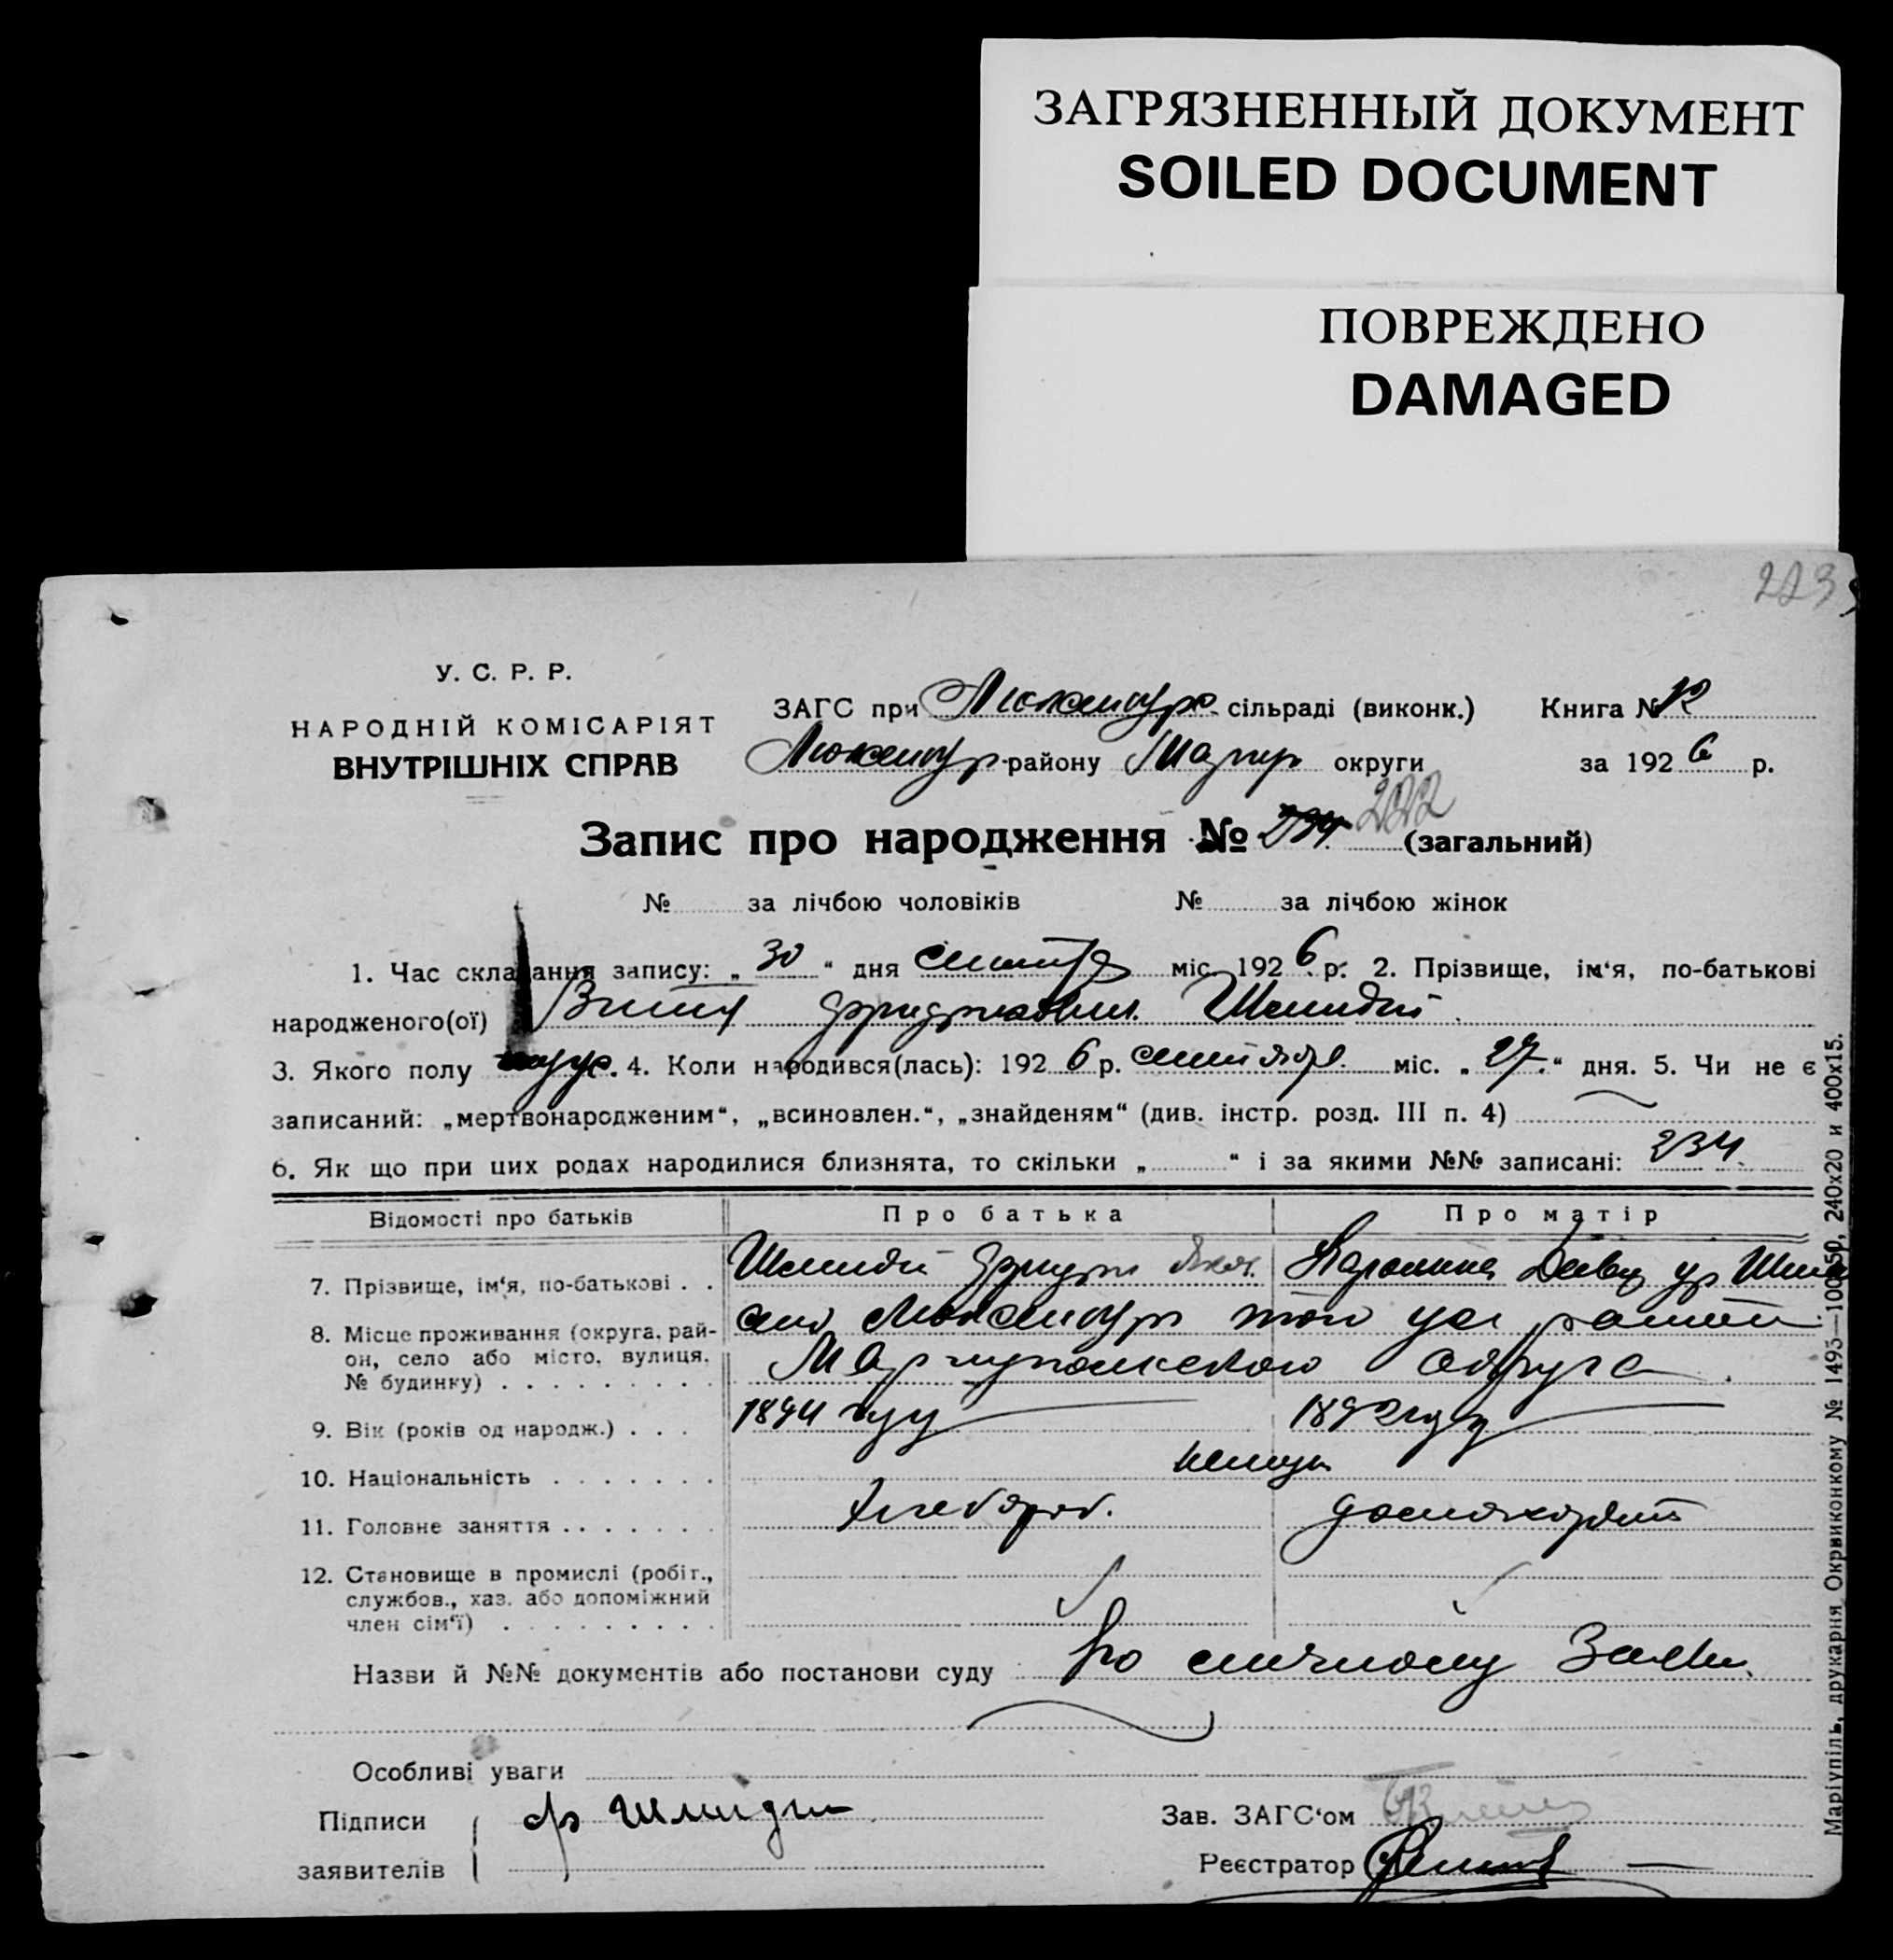 ЗАГРЯЗНЕННЫЙ ДОКУМЕНТ
SOILED DOCUMENT
ПОВРЕЖДЕНО
DAMAGED
223
У. С. Р. Р.
НАРОДНІЙ КОМІСАРІЯТ
ВНУТРІШНІХ СПРАВ
ЗАГС при Люксембур. сільраді (виконк.) Книга №
Люксембур району Мариуп округи за 1926 р.
Запис про народження № 234 222 (загальний)
№ за лічбою чоловіків № за лічбою жінок
1. Час складання запису: „30“ дня сентяб міс. 1926 р. 2. Прізвище, ім‘я, по-батькові
народженого(ої) Фридрихович Шмидт
3. Якого полу муж. 4. Коли народився(лась): 1926 р. сентября міс. „27.“ дня. 5. Чи не є
записаний: „мертвонародженим“, „всиновлен.“, „знайденям“ (див. інстр. розд. III п. 4)
6. Як що при цих родах народилися близнята, то скільки „ “ і за якими №№ записані: 234
Відомості про батьків Про батька Про матір
7. Прізвище, ім‘я, по-батькові . . Шмидт Фридрих Яков. Каролина Давид ур
8. Місце проживання (округа, рай-
он, село або місто, вулиця,
№ будинку) . . . . . . . . . село Люксембург того же района
Мариупольского округа
9. Вік (років од народж.) . . . 1894 году 1892 году
10. Національність . . . . . . . немцы
11. Головне заняття . . . . . . . хлебороб. домохозяй
12. Становище в промислі (робіт.,
службов., хаз. або допоміжний
член сім‘ї) . . . . . . . . .
Назви й №№ документів або постанови суду По личному Заяв.
Особливі уваги
Підписи
заявителів
Фр Шмидт
Зав. ЗАГС‘ом
Реєстратор
Маріупіль, друкарня Окрвиконкому № 1493—100х50, 240х20 и 400х15.